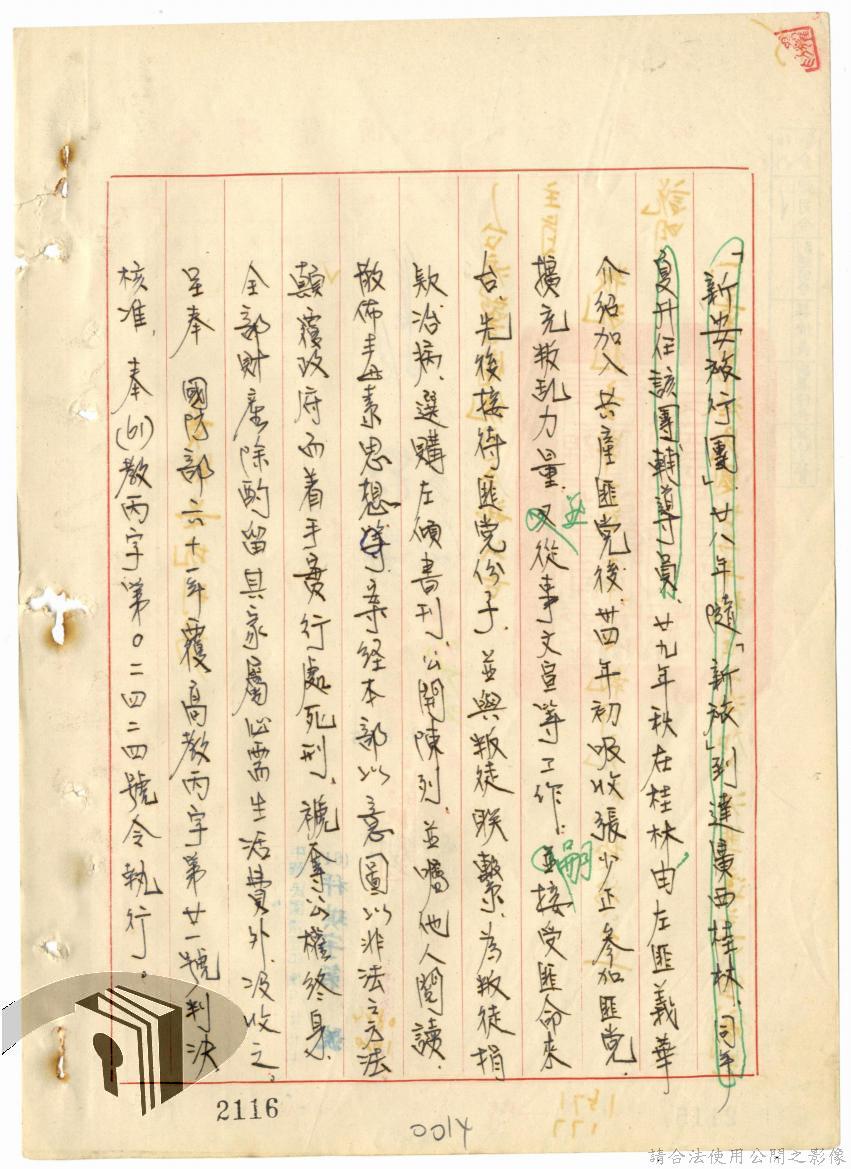 「新安旅行團」廿八年隨「新旅」到達廣西桂林,同年
夏升任該團輔導員,廿九年秋在桂林由左匪義華
介紹加入共產匪党後,卅四年初吸收張少正參加匪党,
擴充叛乱力量,又並從事文宣等工作,並嗣接受匪命來
台,先後接待匪党份子,並與叛徒联繫,為叛徒捐
款治病,選購左傾書刊,公開陳列,並囑他人閱讀,
散佈毒素思想等,案经本部以意圖以非法之方法
顛覆政府而着手實行處死刑,褫奪公權終身,
全部財產除酌留其家屬必需生活費外,没收之。
呈奉 國防部六十一年覆高教丙字第廿一號判决
核准,奉(61)教丙字第0二四二四號令執行。
2116
0014
請合法使用公開之影像